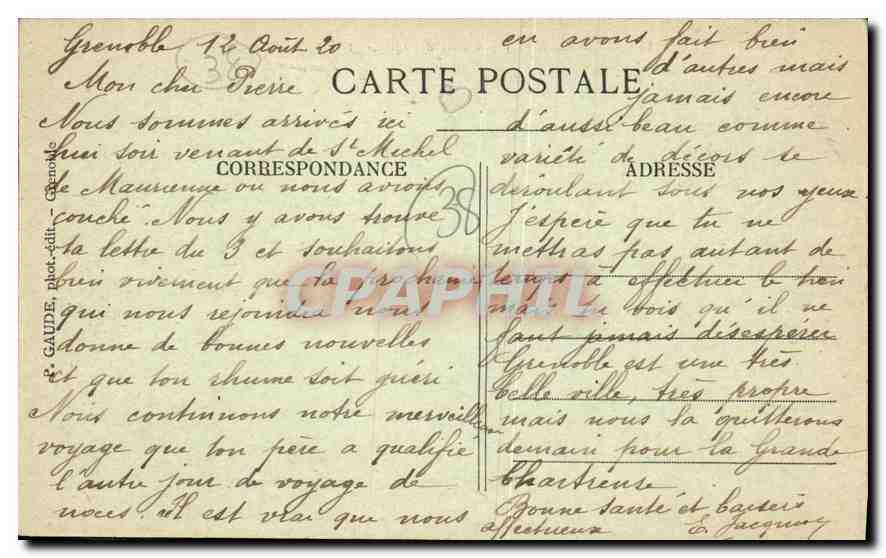 Grenoble 12 Août 20
Mon cher Pierre
CARTE POSTALE
Nous sommes arrivés ici
hier soir venant de St Michel
CORRESPONDANCE
de Maurienne ou nous avions
couché. Nous y avons trouvé
ta lettre du 3 et souhaitons
bien vivement que la prochaine
qui nous rejoindra nous
donne de bonnes nouvelles
et que ton rhume soit guéri
Nous continuons notre merveilleux
voyage que ton père a qualifié
l'autre jour de voyage de
noces. il est vrai que nous
en avons fait bien
d'autres mais
jamais encore
d'aussi beau comme
variété de décors se
ADRESSE
déroulant sous nos yeux.
J'espère que tu ne
mettras pas autant de
temps à effectuer le tien
mais tu vois qu'il ne
faut jamais désespérer
Grenoble est une très
belle ville, très propre
mais nous la quitterons
demain pour la Grande
Chartreuse
Bonne santé et baisers
affectueux E. Jacquot
P. GAUDE, phot.-édit. - Grenoble
38
38
CPAPHIL